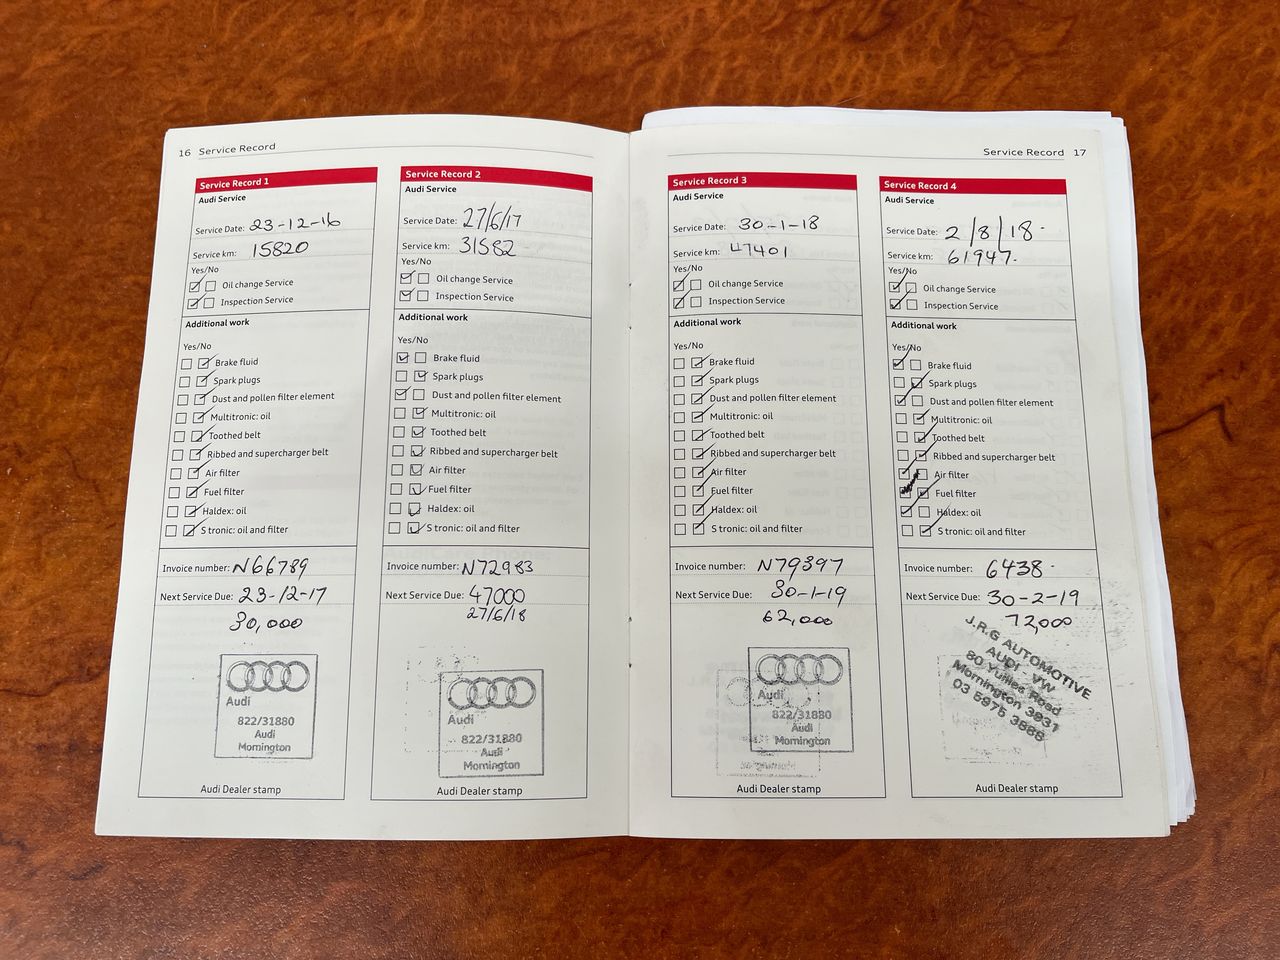 16 Service Record
Service Record 1
Audi Service
Service Date: 23-12-16
Service km: 15820
Yes/No
Oil change Service
Inspection Service
Additional work
Yes/No
Brake fluid
Spark plugs
Dust and pollen filter element
Multitronic: oil
Toothed belt
Ribbed and supercharger belt
Air filter
Fuel filter
Haldex: oil
S tronic: oil and filter
Invoice number: N66789
Next Service Due: 23-12-17
30,000
Audi
822/31880
Audi
Mornington
Audi Dealer stamp
Service Record 2
Audi Service
Service Date: 27/6/17
Service km: 31582
Yes/No
Oil change Service
Inspection Service
Additional work
Yes/No
Brake fluid
Spark plugs
Dust and pollen filter element
Multitronic: oil
Toothed belt
Ribbed and supercharger belt
Air filter
Fuel filter
Haldex: oil
S tronic: oil and filter
Invoice number: N72983
Next Service Due: 47000
27/6/18
Audi
822/31880
Audi
Mornington
Audi Dealer stamp
Service Record 17
Service Record 3
Audi Service
Service Date: 30-1-18
Service km: 47401
Yes/No
Oil change Service
Inspection Service
Additional work
Yes/No
Brake fluid
Spark plugs
Dust and pollen filter element
Multitronic: oil
Toothed belt
Ribbed and supercharger belt
Air filter
Fuel filter
Haldex: oil
S tronic: oil and filter
Invoice number: N79397
Next Service Due: 30-1-19
62,000
Audi
822/31880
Audi
Mornington
Audi Dealer stamp
Service Record 4
Audi Service
Service Date: 2/8/18.
Service km: 61947.
Yes/No
Oil change Service
Inspection Service
Additional work
Yes/No
Brake fluid
Spark plugs
Dust and pollen filter element
Multitronic: oil
Toothed belt
Ribbed and supercharger belt
Air filter
Fuel filter
Haldex: oil
S tronic: oil and filter
Invoice number: 6438.
Next Service Due: 30-2-19
72,000
J.R.G AUTOMOTIVE
AUDI VW
80 Yuilles Road
Mornington 3931
03 5975 3888
Audi Dealer stamp